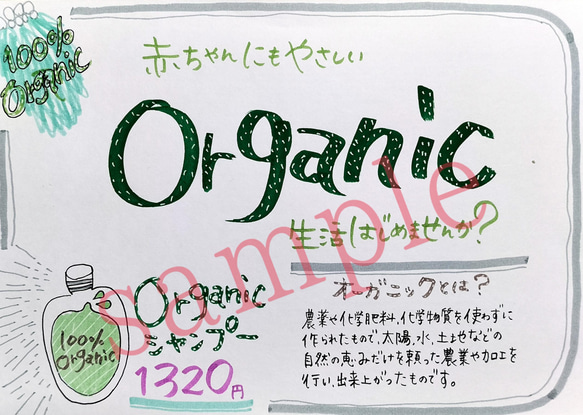 100%
Organic
赤ちゃんにもやさしい
Organic
生活はじめませんか?
sample
オーガニックとは?
農薬や化学肥料、化学物質を使わずに
作られたもので、太陽、水、土地などの
自然の恵みだけを頼った農業や加工を
行い、出来上がったものです。
Organic
シャンプー
1320円
100%
Organic